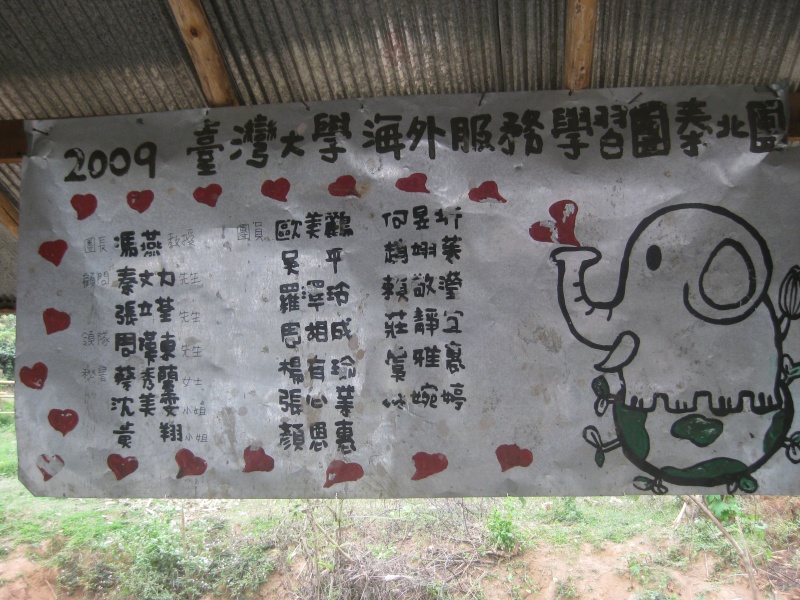 2009 臺灣大學海外服務學習團泰北團
團長 馮燕 教授 團員 歐美鸝 何昱圻
顧問 秦文力 先生 吳平 趙翊英
張立荃 先生 羅澤玲 賴敬瀅
領隊 周漢東 先生 周相成 莊靜宜
秘書 蔡秀蘭 女士 楊有瑜 雅
沈美雯 小姐 張心業 婉婷
黃翔 小姐 顏恩惠